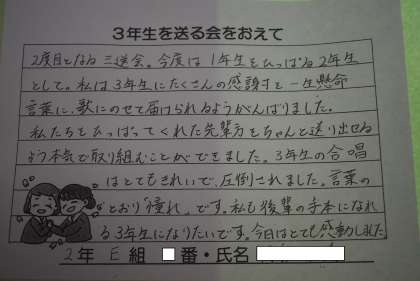 3年生を送る会をおえて
2度目となる三送会。今度は1年生をひっぱる2年生
として。私は3年生にたくさんの感謝を一生懸命
言葉に、歌にのせて届けられるようがんばりました。
私たちをひっぱってくれた先輩方をちゃんと送り出せる
よう本気で取り組むことができました。3年生の合唱
はとてもきれいで、圧倒されました。言葉の
とおり「憧れ」です。私も後輩の手本になれ
る3年生になりたいです。今日はとても感動しました。
2年 E組 番・氏名